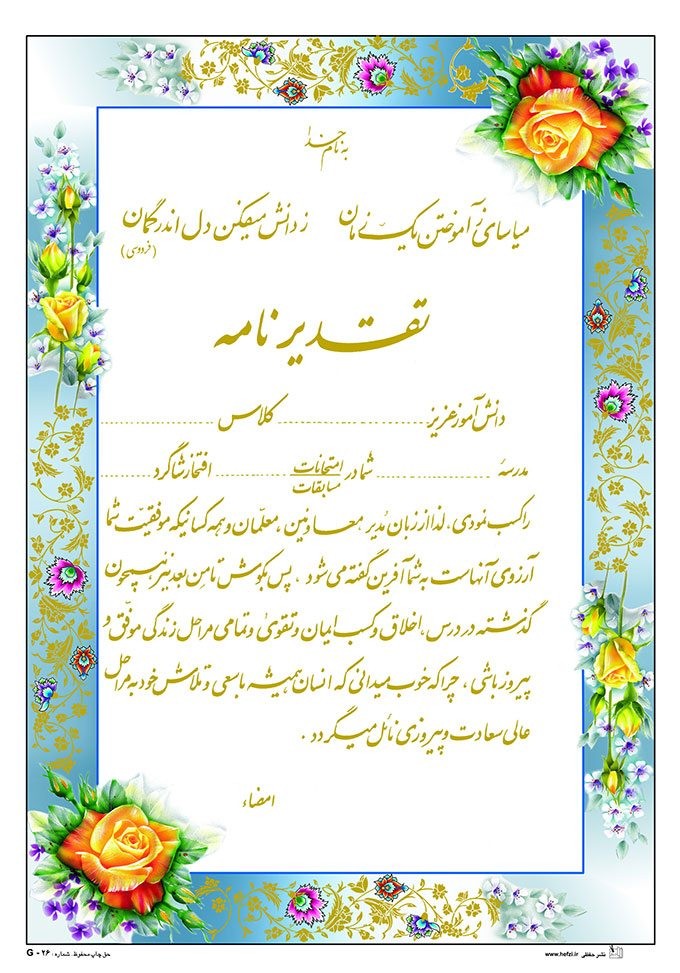 به نام خدا
میاسای ز آموختن یک زمان ز دانش میفکن دل اندر گمان
(فردوسی)
تقدیر نامه
دانش آموز عزیز ........................ کلاس ........................
مدرسهٔ ........................ شما در امتحانات ........................ افتخار شاگرد
مسابقات
را کسب نمودی، لذا از زبان مُدیر معاونین، معلّمان و همه کسانیکه موفقیّت شما
آرزوی آنهاست به شما آفرین گفته می شود، پس بکوش تا مِن بعد نیز همچون
گذشته در درس، اخلاق و کسب ایمان و تقوی و تمامی مراحل زندگی موفّق و
پیروز باشی، چرا که خوب میدانی که انسان همیشه با سعی و تلاش خود به مراحل
عالی سعادت و پیروزی نائل میگردد.
امضاء
نشر حفظی www.hefzi.ir
حق چاپ محفوظ. شماره: G - ۲۶